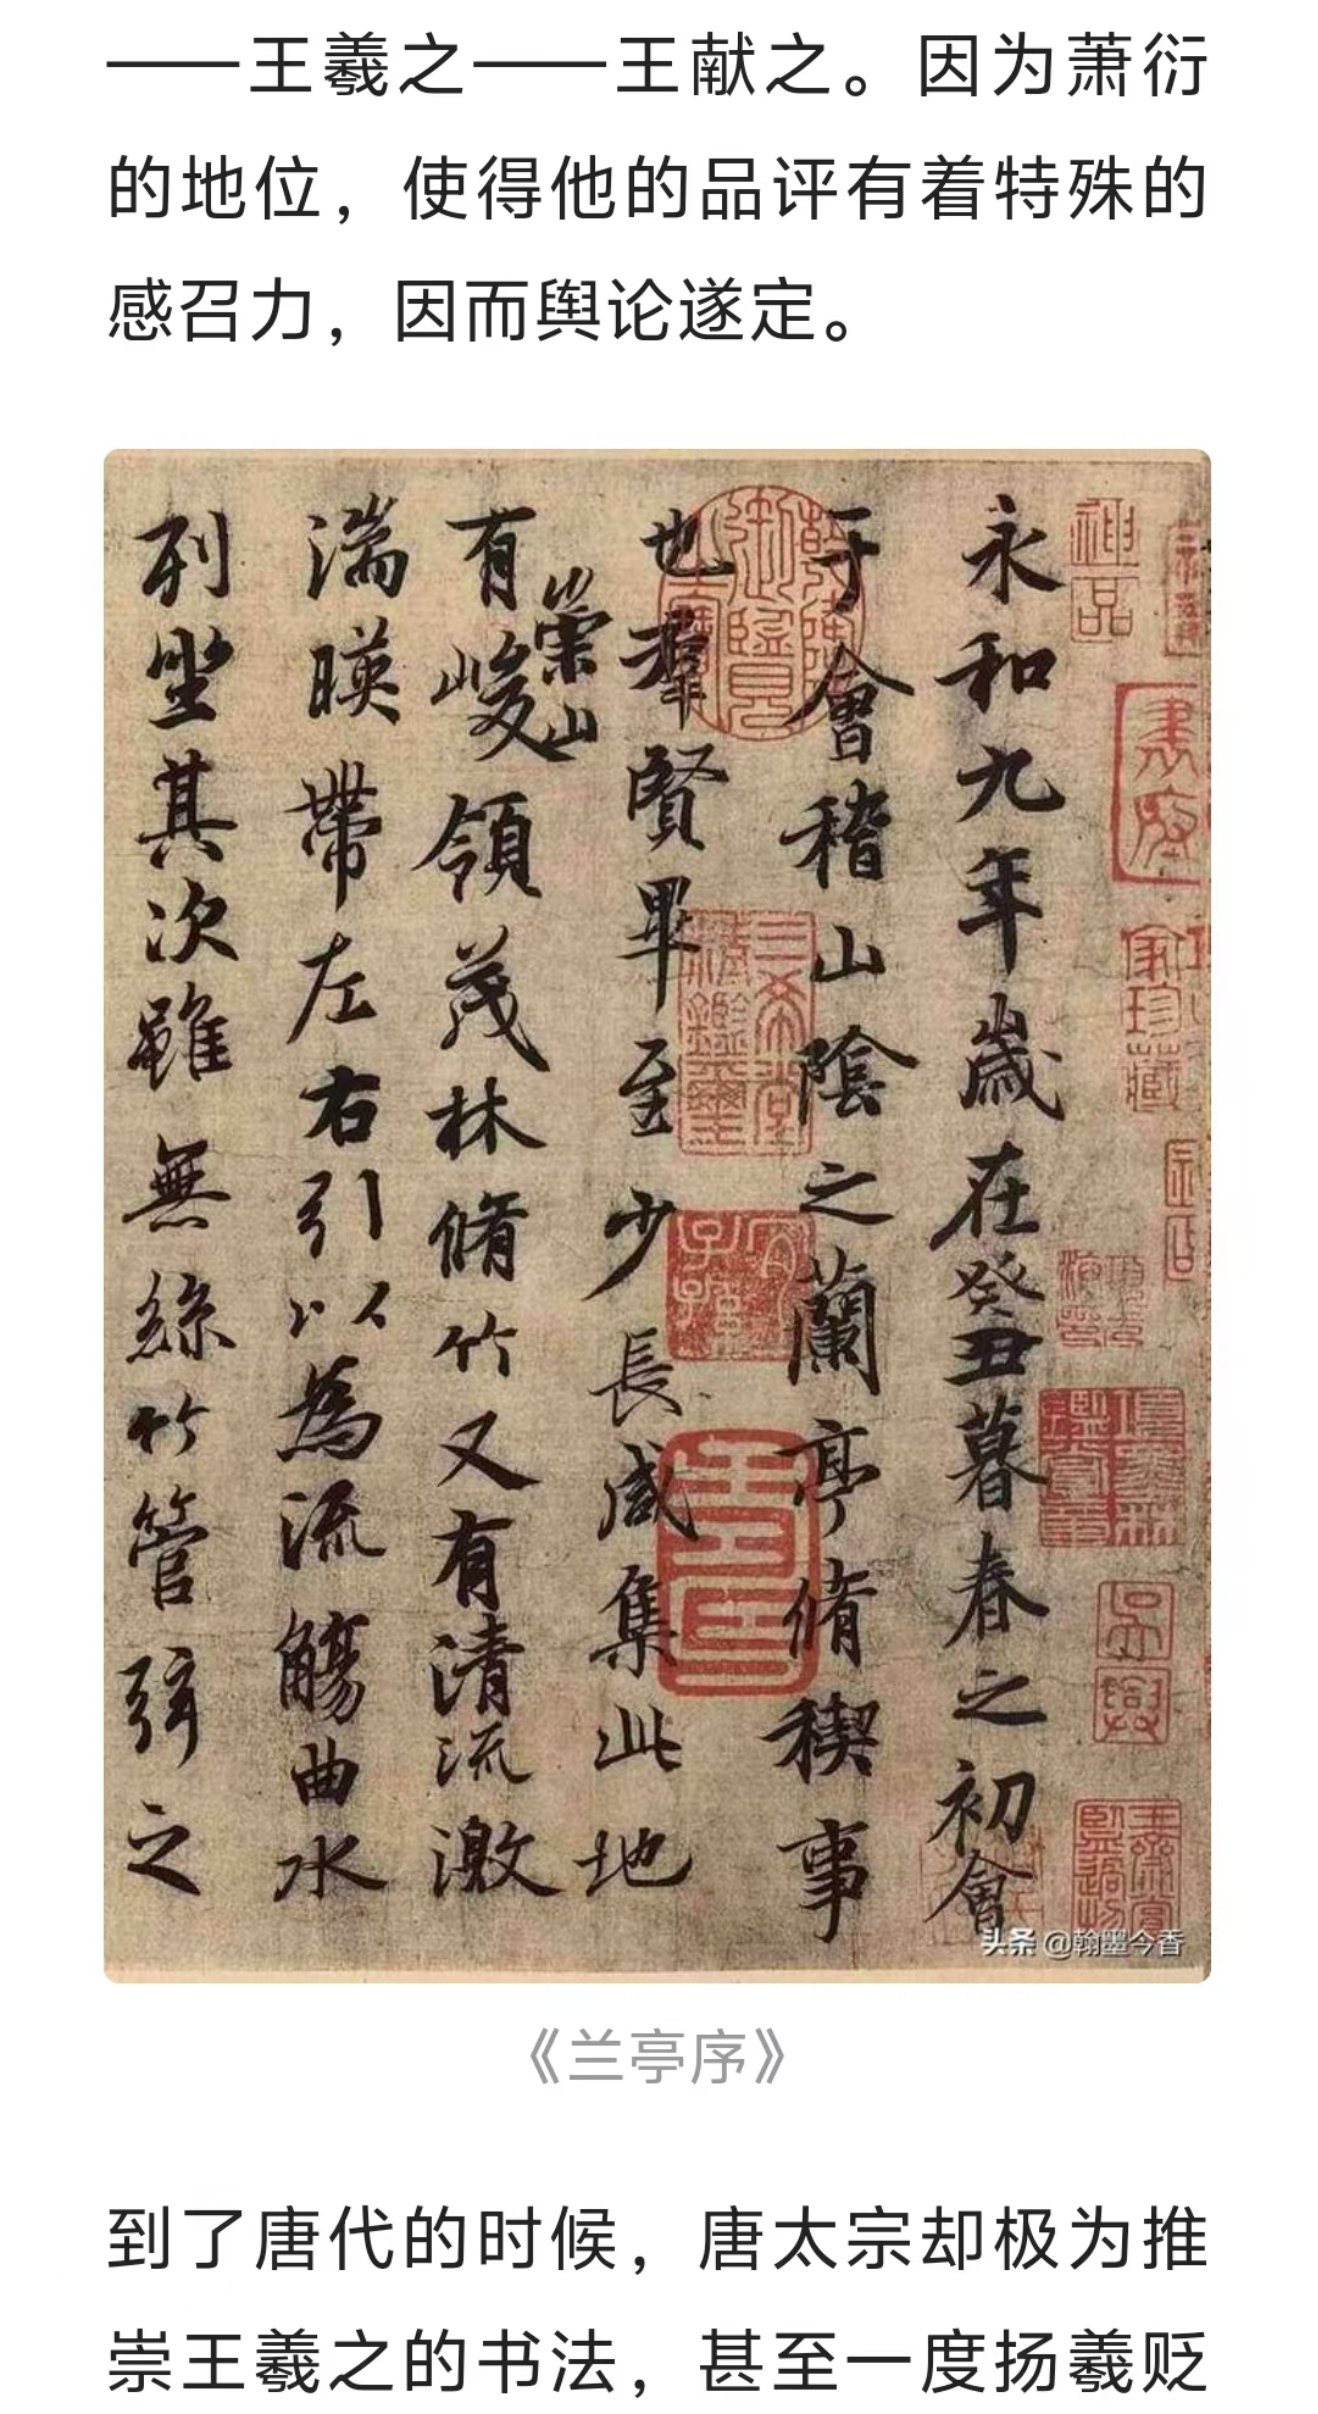 ——王羲之——王献之。因为萧衍
的地位，使得他的品评有着特殊的
感召力，因而舆论遂定。
永和九年歲在癸丑暮春之初會
于會稽山陰之蘭亭脩稧事
也羣賢畢至少長咸集此地
有崇山峻領茂林脩竹又有清流激
湍暎帶左右引以為流觴曲水
列坐其次雖無絲竹管弦之
神品
家珍藏
吳興
头条 @翰墨今香
《兰亭序》
到了唐代的时候，唐太宗却极为推
崇王羲之的书法，甚至一度扬羲贬